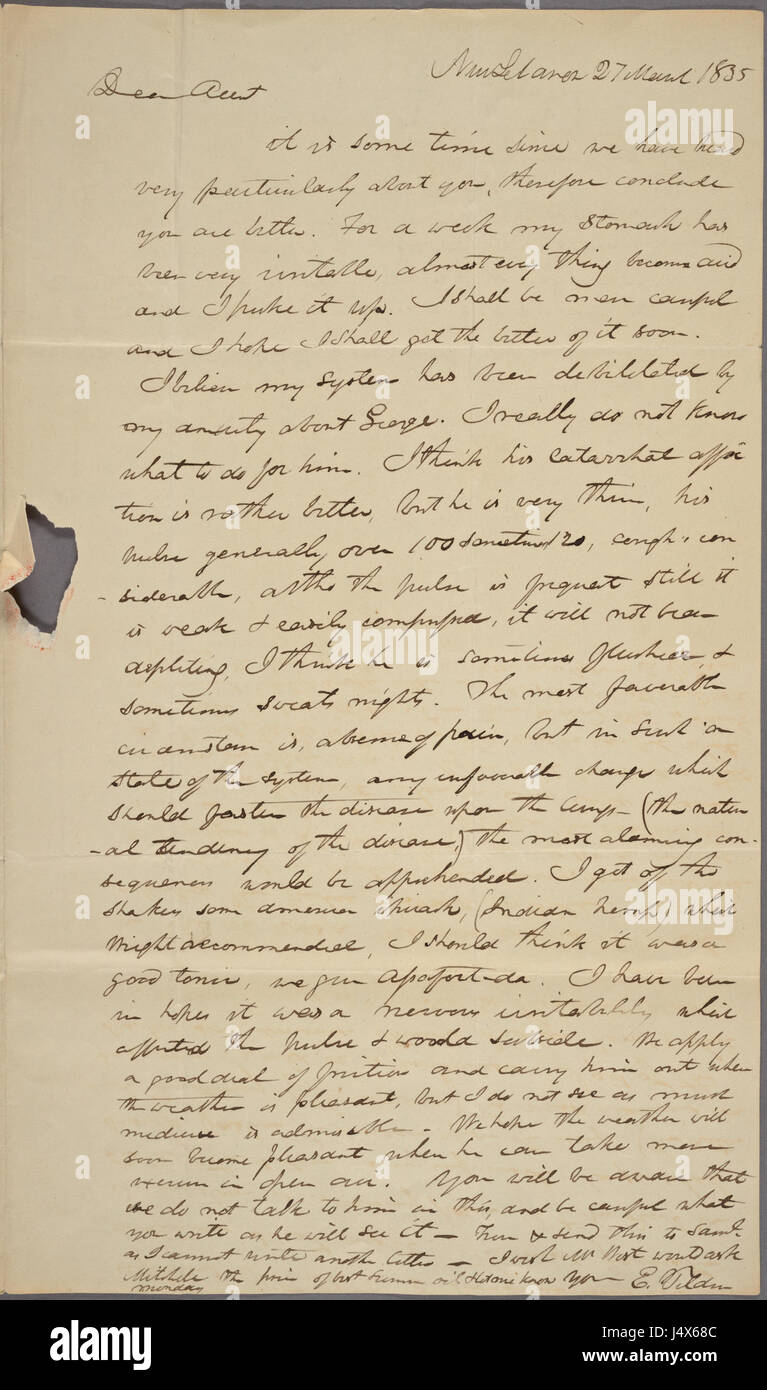 New Lebanon 27 March 1835
Dear Aunt
it is some time since we have heard
very particularly about you, therefore conclude
you are better. For a week my stomach has
been very irritable, almost every thing becomes acid
and I puke it up. I shall be more careful
and I hope I shall get the better of it soon.
I believe my system has been debilitated by
my anxiety about George. I really do not know
what to do for him. I think his catarrhal affec
tion is rather better, but he is very thin, his
pulse generally over 100 sometimes 120, cough con
- siderable, altho the pulse is frequent still it
is weak & easily compressed, it will not bear
depleting, I think he is sometimes &
sometimes sweats nights. The most favorable
circumstance is, absence of pain, but in such a
state of the system, any unfavorable change which
should fasten the disease upon the lungs - (the natur
- al tendency of the disease,) the most alarming con-
sequences would be apprehended. I got of the
Shakers some american (Indian hemp) which
Wright recommended, I should think it was a
good tonic, we give I have been
in hopes it was a nervous irritability which
affected the pulse & would subside. We apply
a good deal of friction and carry him out when
the weather is pleasant, but I do not see as much
medicine is admissible - We hope the weather will
soon become pleasant when he can take more
exercise in open air. You will be aware that
we do not talk to him in this, and be careful what
you write as he will see it - & send this to Saml.
as I cannot write another letter - I wish Mr would ask
Mitchele the price of best oil & let me know You E. Tilden
monday
alamy
alamy stock photo
J4X68C
www.alamy.com